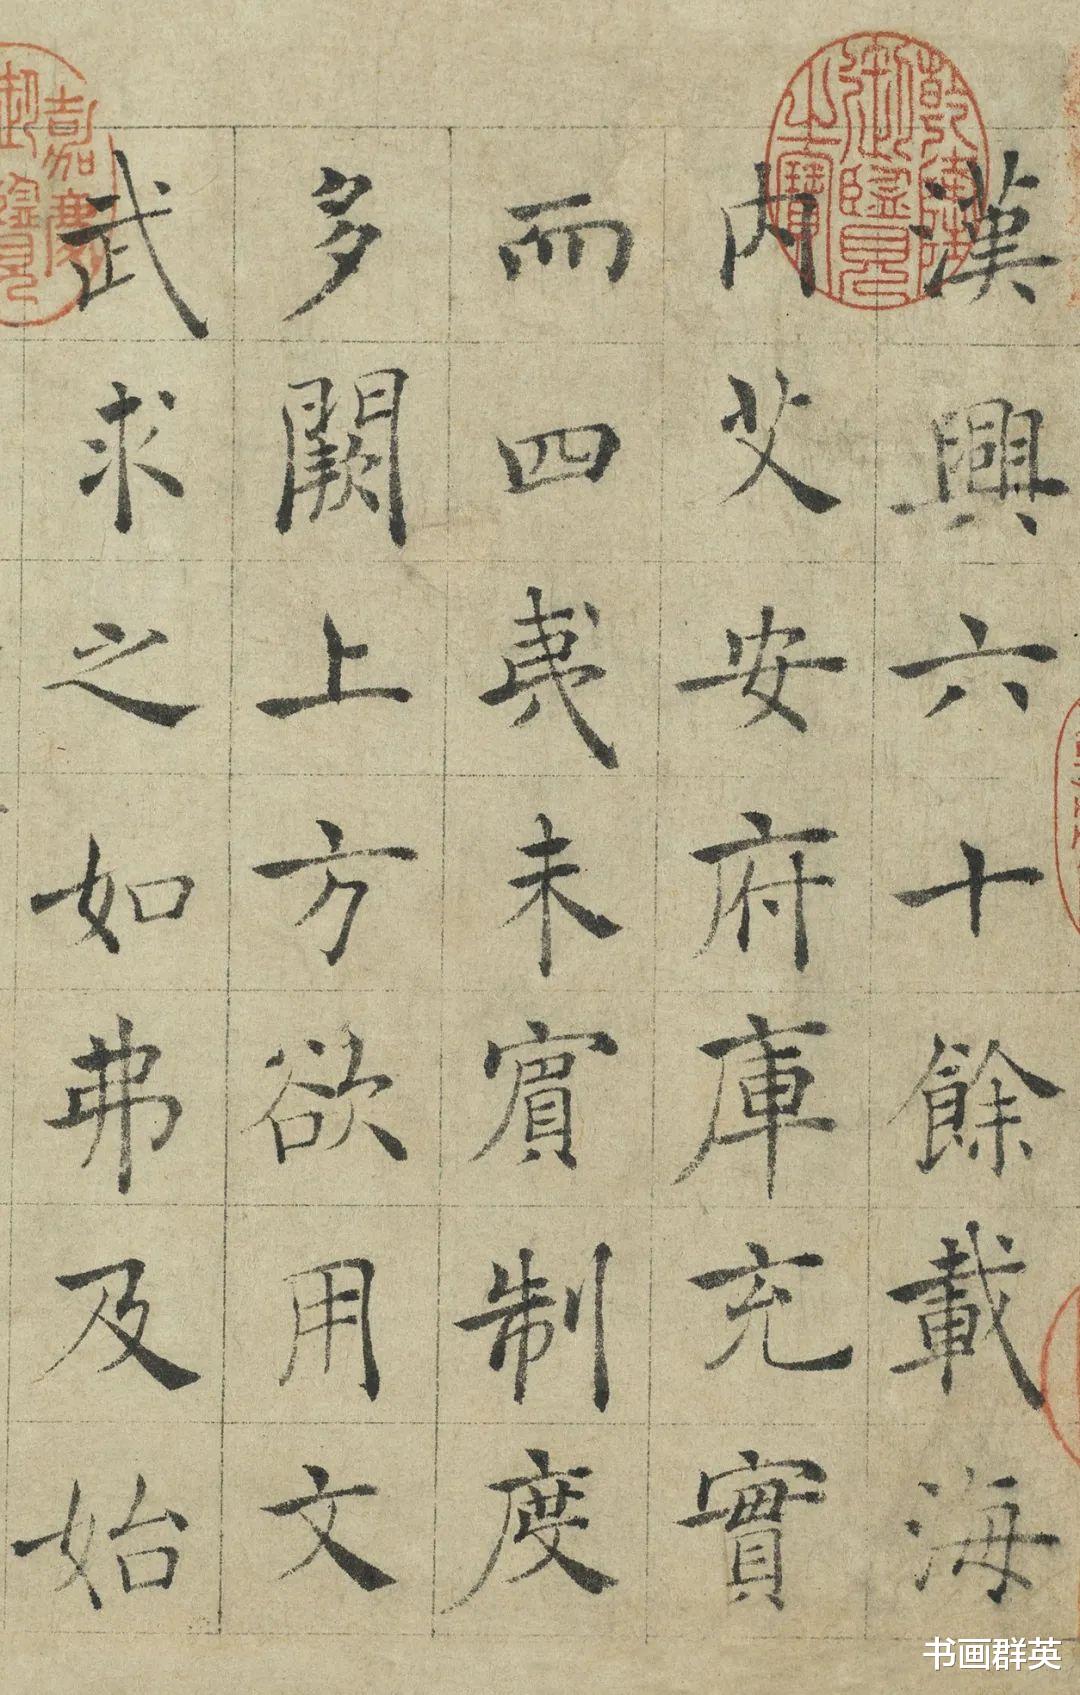 漢興六十餘載海
内艾安府庫充實
而四夷未賓制度
多闕上方欲用文
武求之如弗及始
乾隆御覽之寶
嘉慶御覽
书画群英